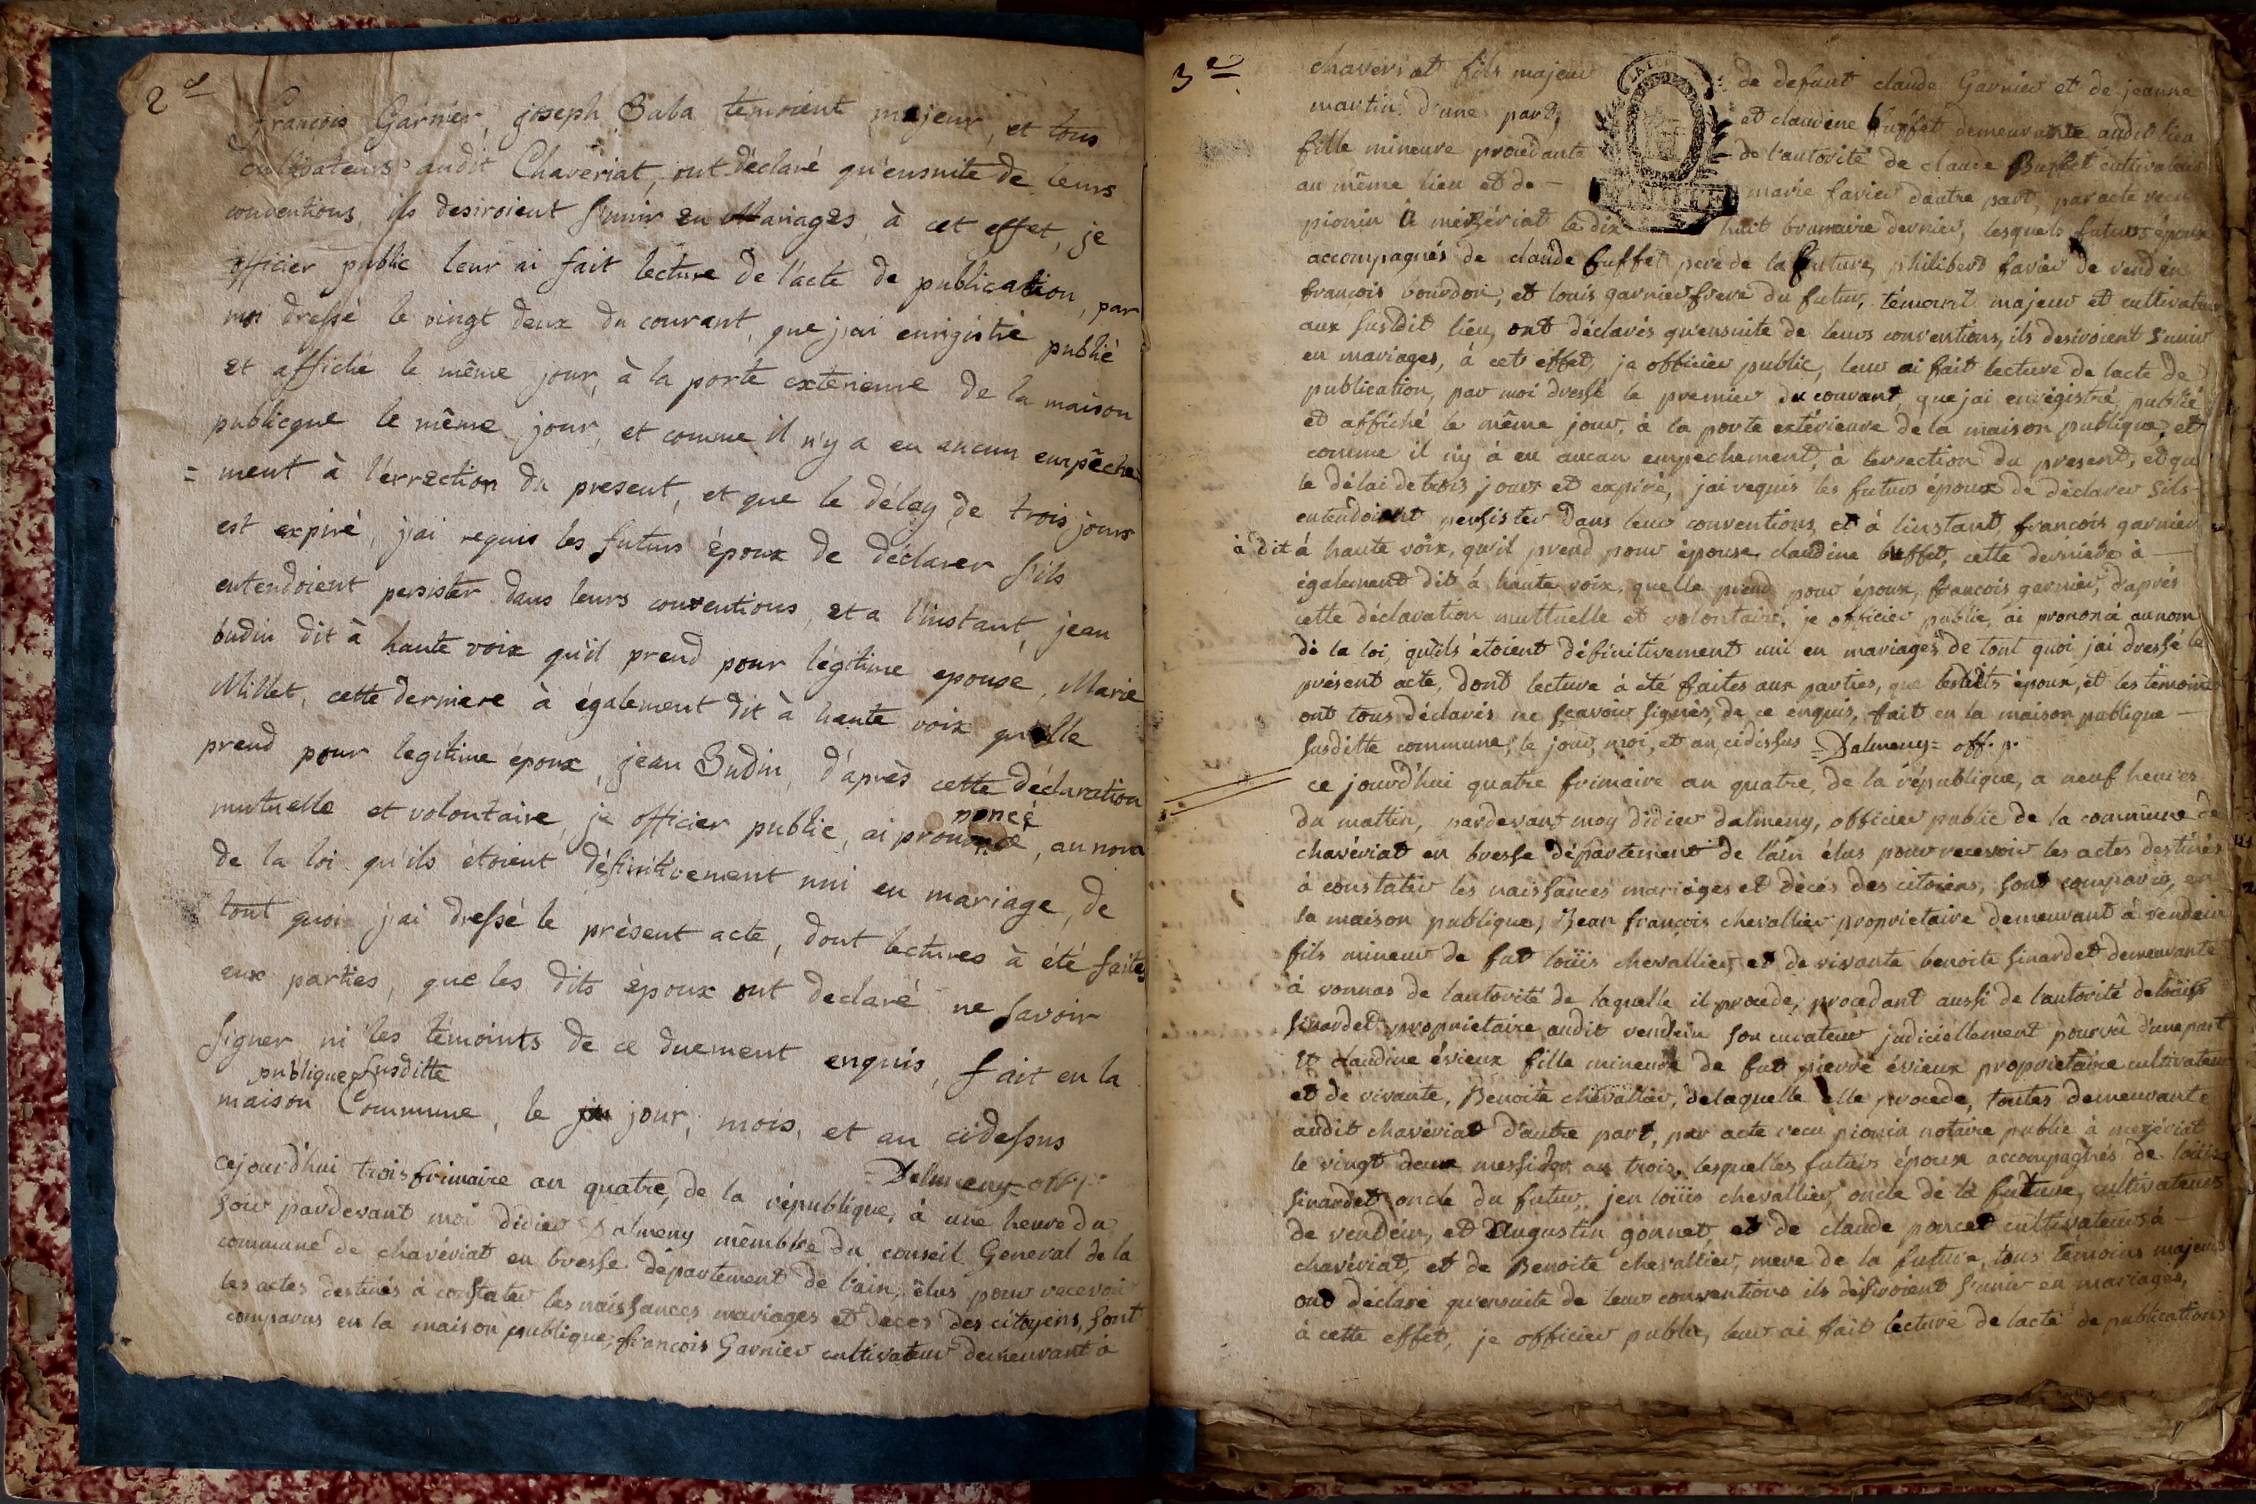 2e
françois Garnier, joseph Buba temoient majeur, et tous
cultivateurs audit Chavériat, ont déclaré qu'ensuite de leurs
conventions, ils desiroient s'unir en Mariages, à cet effet, je
officier public leur ai fait lecture de l'acte de publication, par
moi dressé le vingt deux du courant, que j'ai enrigistré publié
et affiché le même jour, à la porte exterieure de la maison
publicque le même jour, et comme il n'y a eu aucun empêche
= ment à l'errection du present, et que le délay de trois jours
est expiré, j'ai requis les futurs époux de déclarer s'ils
entendoient persister dans leurs conventions, et a l'instant, jean
budin dit à haute voix qu'il prend pour légitime epouse, Marie
Millet, cette derniere à également dit à haute voix qu'elle
prend pour legitime époux, jean Budin, d'après cette déclaration
mutuelle et volontaire, je officier public, ai prononcé, au nom
de la loi qu'ils étoient définitivement uni en mariage, de
tout quoi j'ai dressé le présent acte, dont lectures à été faites
aux parties, que les dits époux ont declaré ne savoir
signer ni les témoints de ce duement enquis, fait en la
publique susditte
maison Commune, le jour, mois, et an cidessus
Dalmeny off. p.
cejourd'hui trois frimaire an quatre, de la république, à une heure du
soir pardevant moi didier Dalmeny membre du conseil General de la
commune de chavériat en bresse département de l'ain, élus pour recevoir
les actes destinés à constater les naissances mariages et décès des citoyens, sont
comparus en la maison publique, françois Garnier cultivateur demeurant à
3e
chavériat fils majeur de defunt claude Garnier et de jeanne
martin d'une part, et claudine buffet demeurante audit lieu
fille mineure procedante de l'autorité de claude Buffet cultivateur
au même lieu et de marie favier d'autre part, par acte recu
pionin à mézériat le dix huit brumaire dernier, lesquels futurs époux
accompagnés de claude buffet pere de la future, philibert favier de vendein
françois bourdon, et louis garnier frere du futur, témoint majeur et cultivateur
aux susdit lieu, ont déclarés qu'ensuite de leurs conventions, ils desiroient s'unir
en mariages, à cets effet, je officier public, leur ai fait lecture de lacte de
publication, par moi dressé le premier du courant, que jai enrégistré, publié
et affiché le même jour, à la porte extérieure de la maison publique, et
comme il n'y à eu aucun empechement, à l'errection du present, et que
le délai de trois jours et expiré, jai requis les futurs époux de déclarer s'ils
entendoient persister dans leur conventions, et à l'instant françois garnier
à dit à haute voix, qu'il prend pour épouse claudine buffet, cette derniere à
également dit à haute voix, quelle prend pour époux, françois garnier, d'après
cette déclaration muttuelle et volontaire, je officier public, ai prononcé au nom
de la loi, qu'ils étoient définitivement uni en mariages de tout quoi jai dressé le
présent acte, dont lecture à été faites aux parties, que lesdits époux, et les témoins
ont tous déclarés ne sçavoir signés, de ce enquis, fait en la maison publique
susditte commune, le jour, moi, et an, cidessus = Dalmeny = off. p.
ce jourd'hui quatre frimaire an quatre, de la république, a neuf heures
du mattin, pardevant moy didier dalmeny, officier public de la commune de
chavériat en bresse département de l'ain élus pour recevoir les actes destinés
à constater les naissances mariages et décès des citoiens, sont comparus, en
la maison publique, Jean françois chevallier proprietaire demeurant à vendein
fils mineur de fut loüis chevallier, et de vivante benoite sinardet demeurante
à vonnas de lautorité de laquelle il procede, procedant aussi de l'autorité de loüis
sinardet proprietaire audit vendein son curateur judiciellement pourvû d'une part
et claudine évieux fille mineure de fut pierre évieux proprietaire cultivateur
et de vivante, Benoite chevallier, delaquelle elle procede, toutes demeurante
audit chavériat d'autre part, par acte recu pionin notaire public à mezériat
le vingt deux messidor an trois, lesquelles futurs époux accompagnés de loüis
sinardet oncle du futur, jeu loüis chevallier, oncle de la future, cultivateurs
de vendein, et augustin gonnet, et de claude poncet cultivateurs à
chavériat, et de Benoite chevallier, mere de la future, tous témoins majeurs
ont déclaré qu'ensuite de leur conventions ils désiroient s'unir en mariages,
à cette effet, je officier public, leur ai fait lecture de lacte de publications